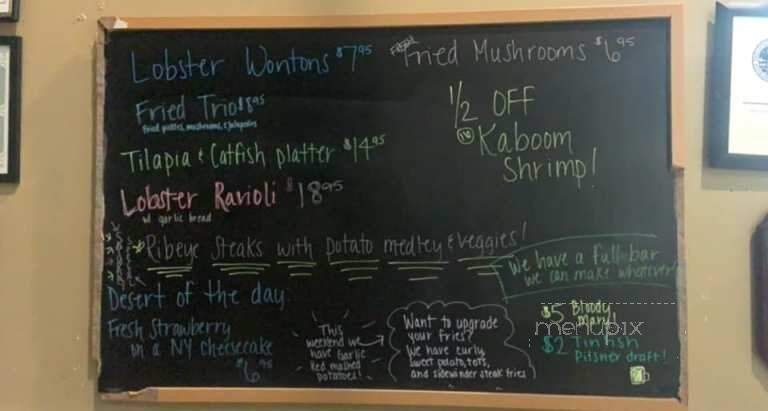 Lobster Wontons $7.95
Fresh Fried Mushrooms $6.95
Fried Trio $8.95
fried pickles, mushrooms, & jalapeños
1/2 OFF
Kaboom
Shrimp!
Tilapia & Catfish platter $14.95
Lobster Ravioli $18.95
w/ garlic bread
Ribeye Steaks with potato medley & veggies!
We have a full-bar
we can make whatever!
Desert of the day:
Fresh Strawberry
on a NY Cheesecake
$6.95
This
weekend we
have Garlic
Red mashed
potatoes!
Want to upgrade
your fries?
We have curly,
sweet potato, tots,
and sidewinder steak fries
$5 Bloody
Mary!
$2 Tin fish
Pilsner draft!
menupix